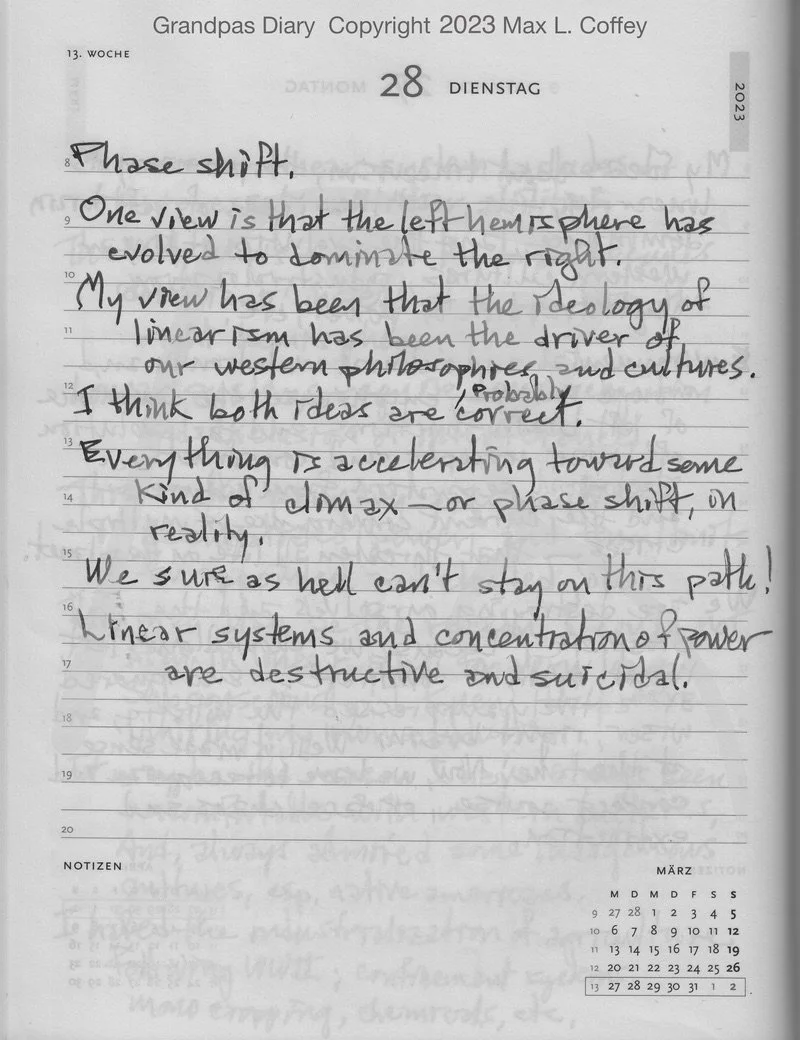 Grandpas Diary Copyright 2023 Max L. Coffey
13. WOCHE
28 DIENSTAG
2023
8 Phase shift.
9 One view is that the left hemisphere has
evolved to dominate the right.
10 My view has been that the ideology of
11 linearism has been the driver of
our western philosophies and cultures.
probably
12 I think both ideas are correct.
13 Everything is accelerating toward some
14 kind of climax — or phase shift, in
reality.
15 We sure as hell can't stay on this path!
16 Linear systems and concentration of power
17 are destructive and suicidal.
18
19
20
NOTIZEN
MÄRZ
M D M D F S S
9 27 28 1 2 3 4 5
10 6 7 8 9 10 11 12
11 13 14 15 16 17 18 19
12 20 21 22 23 24 25 26
13 27 28 29 30 31 1 2